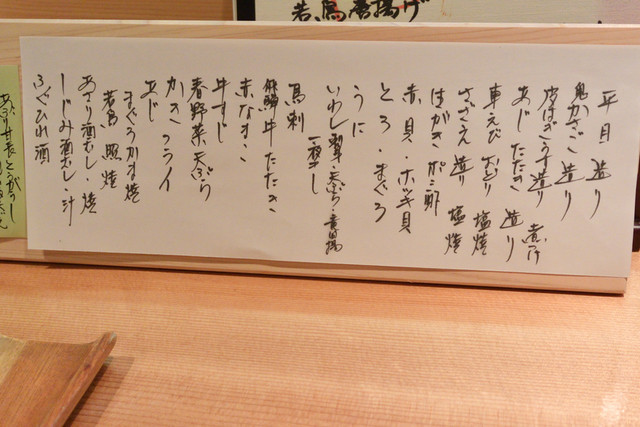 若鳥唐揚げ
平目 造り
鬼かさご 造り
皮はぎうす造り 煮付
あじ たたき 造り
車えび おどり 塩焼
さざえ 造り 塩焼
はがき ポン酢
赤貝・ホッキ貝
とろ・まぐろ
うに
いわし 天ぷら
一夜干し
馬刺
飛騨牛 たたき
赤なまこ
牛すじ
春野菜 天ぷら
かき フライ
あじ
まぐろかま焼
若鳥 照焼
あさり酒むし・焼
しじみ酒むし・汁
ふぐひれ酒
あぶり甘長とうがらし